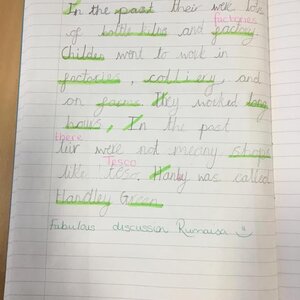 In the past their wek lots
factories
of and factory.
Childen went to work in
factories, colliery, and
on farms. They worked long
hours. In the past
there
teir were not meany shops
Tesco
like Teso. Hanly was called
Handley Green
Fabulous discussion Rumaisa